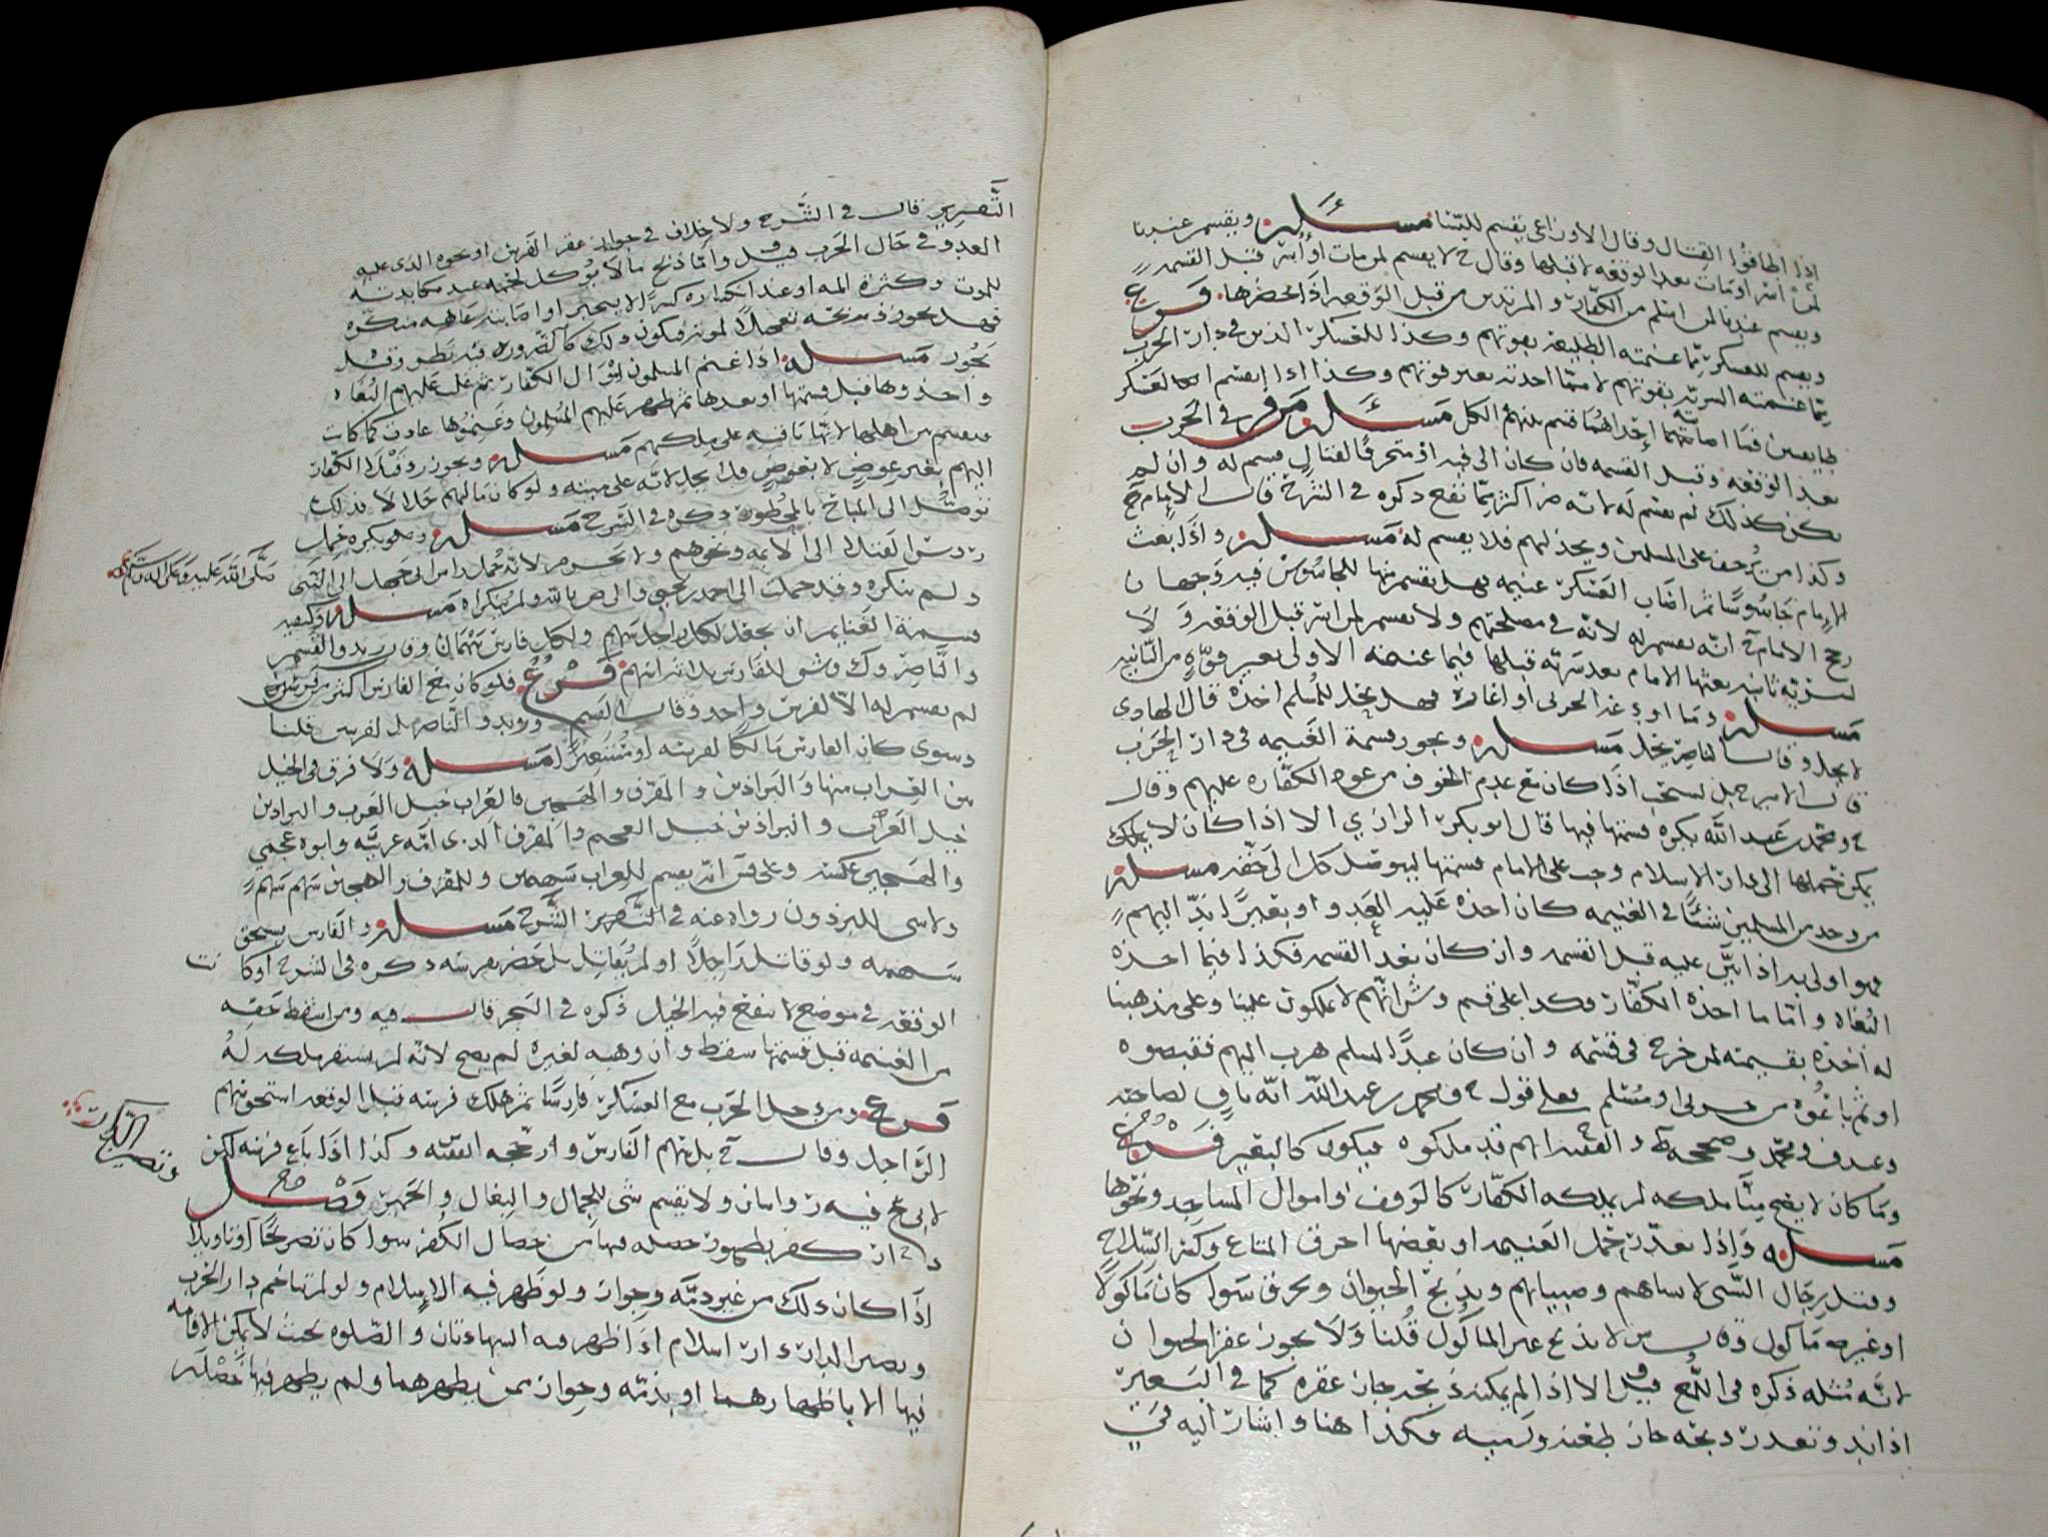 إذا اطاقوا القتال وقال الاوزاعي يقسم للنسا مسئلة ويقسم عندنا
لمن اسر او مات بعد الوقعه لا قبلها وقال ح لا يقسم لمن مات او اسر قبل القسمه
ويقسم عندنا لمن اسلم من الكفار والمرتدين من قبل الوقعه اذا حضرها فرع
ويقسم للعسكر مما غنمته الطليعة بقوتهم وكذا للعسكر الذين في دار الحرب
مما غنمته السرية بقوتهم لا مما اخذته بغير قوتهم وكذا
قسم بينهم الكل مسئلة من فر في الحرب
بعد الوقعه وقبل القسمه فان كان الى فيه او متحرفا لقتال قسم له وان لم
يكن كذلك لم يقسم له لانه ذكره في الشرح قال الامام ح
وكذا من على المسلمين ويخذلهم فلا يقسم له مسئلة واذا بعث
الامام جاسوسا ثم اصاب العسكر غنيمه فهل يقسم منها للجاسوس فيه وجهان
رجح الامام ي انه يقسم له لانه في مصلحتهم ولا يقسم لمن اسر قبل الوقعه ولا
لسرية ثانيه بعثها الامام بعد سريه قبلها فيما غنمته الاولى بغير قوة من الثانيه
مسئلة وما اودع عند الحربي او اعاره فهل يحل للمسلم اخذه قال الهادي
لا يحل وقال الناصر يحل مسئلة ويجوز قسمة الغنيمه في دار الحرب
قال الامير ح بل يستحب اذا كان مع عدم الخوف من عود الكفار عليهم وقال
ح ومحمد بن عبد الله يكره قسمتها فيها قال ابو بكر الرازي الا اذا كان لا
يمكن حملها الى دار الاسلام وجب على الامام قسمتها ليوصل كل الى حقه مسئلة
من وجد من المسلمين شيئا في الغنيمه كان اخذه عليه العدو او بعيرا ند اليهم
فهو اولى به اذا بين عليه قبل القسمه وان كان بعد القسمه فكذا فيما اخذه
البغاة واما ما اخذه الكفار فكذا على قسم وش انهم لا يملكون علينا وعلى مذهبنا
له اخذه بقيمته لمن خرج في قسمه وان كان عبدا لمسلم هرب اليهم فقبضوه
او ثم باعوه من حربي او مسلم فعلى قول ح ومحمد بن عبد الله انه باق لصاحبه
وعند ف ومحمد وصححه ط والفقيه ح انهم قد ملكوه فيكون كالبعير فرع
وما كان لا يصح منا ملكه لم يملكه الكفار كالوقف واموال المساجد ونحوها
مسئلة واذا تعذر حمل الغنيمه او بعضها احرق المتاع وكسر السلاح
وقتل رجال السبي لا نساهم وصبيانهم ويذبح الحيوان ويحرق سوا كان ماكولا
او غيره ماكول وقال ش لا يذبح غير الماكول قلنا ولا يجوز عقر الحيوان
لانه مثله ذكره في اللمع قيل الا اذا لم يمكن ذبحه جاز عقره كما في البعير
اذا ند وتعذر ذبحه جاز طعنه ورميه فكذا هنا واشار اليه في
التحرير قال في الشرح ولا خلاف في جواز عقر الفرس او نحوه الذي عليه
العدو في حال الحرب قيل واما ذبح ما لا يوكل لحمه عند مكابدته
للموت وكثرة المه او عند انكساره كسرا لا ينجبر او اصابته عاهه منكره
فهل يجوز ذبحه تعجيلا لموته فيكون ذلك كالضروره فيه نظر وقيل
يجوز مسئلة اذا غنم المسلمون اموال الكفار ثم غلب عليهم البغاة
واخذوها قبل قسمتها او بعدها ثم ظهر عليهم المسلمون وغنموها عادت كما كانت
لانها باقيه على ملكهم مسئلة ويجوز رد قتلا الكفار
اليهم بغير عوض لا بعوض فلا يحل لانه على ميته ولو كان مالهم حلالا فذلك
توصل الى المباح بالمحظور ذكره في الشرح مسئلة ويكره حمل
روس القتلا الى الائمه ونحوهم ولا يحرم لانه حمل راس ابي جهل الى النبي
صلى الله عليه وعلى اله وسلم
ولم ينكره وقد حملت الى احمد بن يحيى والى ص بالله ولم ينكراه مسئلة وكيفية
قسمة الغنايم ان يجعل لكل راجل سهم ولكل فارس سهمان وقال زيد والقسم
والناصر وك وش للفارس ثلاثة اسهم فرع فلو كان مع الفارس اكثر من فرس
لم يقسم له الا لفرس واحد وقال القسم وزيد والناصر بل لفرسين قلنا
وسوى كان الفارس مالكا لفرسه او مستعيرا مسئلة ولا فرق في الخيل
بين العراب منها والبراذين والمقرف والهجين فالعراب خيل العرب والبراذين
خيل العجم والمقرف الذي امه عربيه وابوه عجمي
والهجين عكسه وعلى قول انه يقسم للعراب سهمين وللمقرف والهجين سهم سهم
ولا شي للبرذون رواه عنه في التحرير الشرح مسئلة والفارس يستحق
سهمه ولو قاتل راجلا او لم يقاتل بل حضر بفرسه ذكره في الشرح او كانت
الوقعه في موضع لا تنفع فيه الخيل ذكره في البحر قال فيه ومن اسقط حقه
من الغنيمه قبل قسمتها سقط وان وهبه لغيره لم يصح لانه لم يستقر ملكه له
فرع ومن دخل الحرب مع العسكر فارسا ثم هلك فرسه قبل الوقعه استحق سهم
الراجل وقال ح بل سهم الفارس وكذا اذا باع فرسه لكن
وتصير الذكرى
لابي ح فيه روايتان ولا يقسم شي للجمال والبغال والحمير فصل
دار كفر بظهور خصله فيها من خصال الكفر سوا كان تصريحا او تاويلا
اذا كان ذلك من غير ذمه وجوار ولو ظهر فيه الاسلام ولو لم تتاخم دار الحرب
وتصير الدار دار اسلام اذا ظهر فيه الشهادتان والصلوة بحيث لا يمكن الاقامه
فيها الا باظهارهما او بذمه وجوار ممن يظهرهما ولم يظهر فيها خصلة